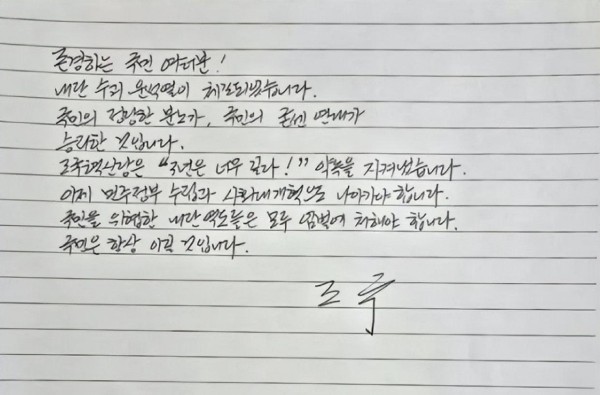 존경하는 국민 여러분!
내란 수괴 윤석열이 체포되었습니다.
국민의 정당한 분노가, 국민의 굳센 연대가
승리한 것입니다.
조국혁신당은 "3년은 너무 길다!" 약속을 지켜냈습니다.
이제 민주정부 수립과 사회대개혁으로 나아가야 합니다.
국민을 위협한 내란 역도들은 모두 엄벌에 처해야 합니다.
국민은 항상 이길 것입니다.
조국